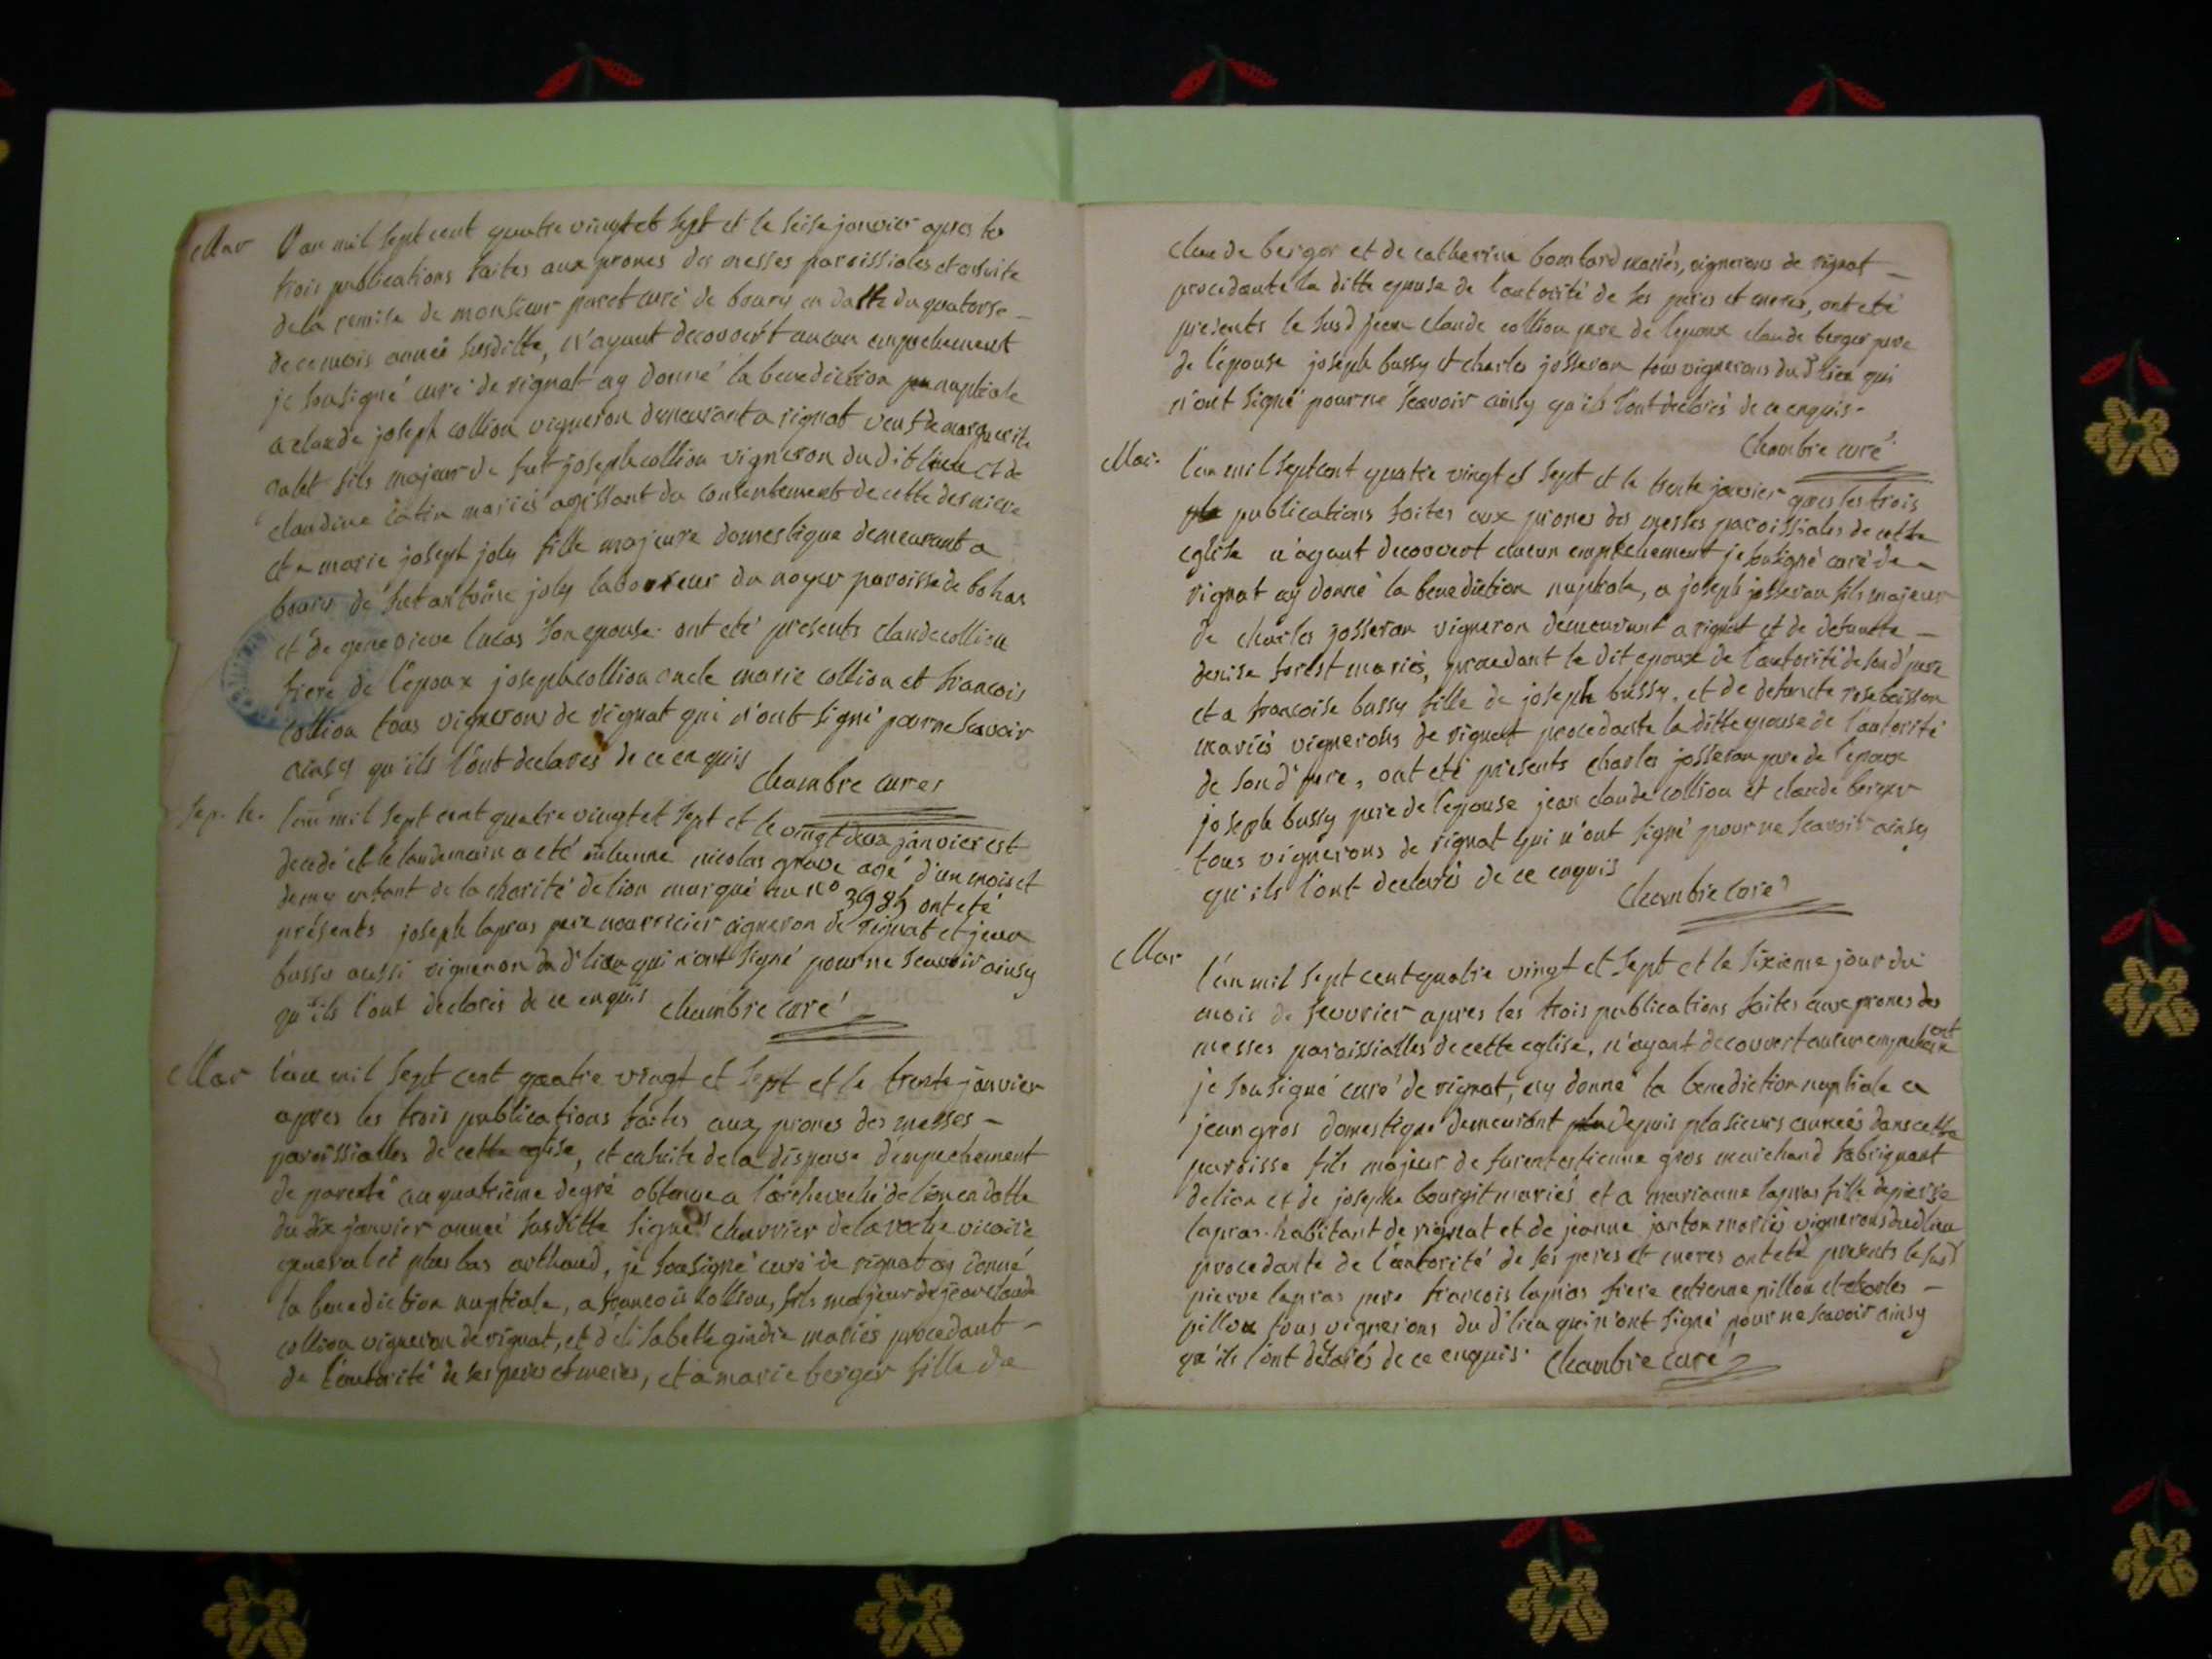 Mar
L'an mil sept cent quatre vingt et sept et le seise janvier apres les
trois publications faites aux prones des messes paroissiales et ensuite
de la remise de monsieur paret curé de bourg en datte du quatorse
de ce mois année susditte, n'ayant decouvert aucun empechement
je sousigné curé de rignat ay donné la benediction nuptiale
a claude joseph collion vigneron demeurant a rignat veuf de marguerite
valet fils majeur de fut joseph collion vigneron du dit lieu et de
claudine catin mariés agissant du consentement de cette derniere
et a marie joseph joly fille majeure domestique demeurant a
bourg de fut antoine joly laboureur du noyer paroisse de bohas
et de genevieve lucas son epouse. ont eté presents claude collion
frere de l'epoux joseph collion oncle marie collion et francois
collion tous vignerons de rignat qui n'ont signé pour ne scavoir
ainsy qu'ils l'ont declarés de ce enquis
Chambre cures
Sep. le.
l'an mil sept cent quatre vingt et sept et le vingt deux janvier est
decedé et le landemain a eté inhumé nicolas grave agé d'un mois et
demy enfant de la charité de lion marqué au n° 3985 ont eté
présents joseph lapras pere nourricier vigneron de rignat et jean
bussy aussi vigneron du d' lieu qui n'ont signé pour ne scavoir ainsy
qu'ils l'ont declarés de ce enquis Chambre curé
Mar
l'an mil sept cent quatre vingt et sept et le trente janvier
apres les trois publications faites aux prones des messes –
paroissialles de cette eglise, et ensuite de la dispense d'empechement
de parenté au quatrième degré obtenue a l'archeveché de lion en datte
du dix janvier année susditte signé charrier de la roche vicaire
general et plus bas arthaud, je sousigné curé de rignat ay donné
la benediction nuptiale, a francois collion, fils majeur de jean claude
collion vigneron de rignat, et d'elisabette gindre mariés procedant –
de l'autorité de ses peres et meres, et a marie berger fille de
claude berger et de catherine bombard mariés, vignerons de rignat –
procedante la ditte epouse de l'autorité de ses peres et meres, ont eté
présents le susd jean claude collion pere de l'epoux claude berger pere
de l'épouse joseph bussy et charles josseran tous vignerons du d' lieu qui
n'ont signé pour ne scavoir ainsy qu'ils l'ont declarés de ce enquis.
Chambre curé
Mar.
l'an mil sept cent quatre vingt et sept et le trente janvier apres les trois
publications faites aux prones des messes paroissiales de cette
eglise n'ayant decouvert aucun empechement je sousigné curé de
rignat ay donné la benediction nuptiale, a joseph josseran fils majeur
de charles josseran vigneron demeurant a rignat et de defuncte –
denise forest mariés, procedant le dit epoux de l'autorité de son d' pere
et a francoise bussy fille de joseph bussy, et de defuncte rose boisson
mariés vignerons de rignat procedante la ditte epouse de l'autorité
de son d' pere, ont eté présents charles josseran pere de l'epoux
joseph bussy pere de l'epouse jean claude collion et claude berger
tous vignerons de rignat qui n'ont signé pour ne scavoir ainsy
qu'ils l'ont declarés de ce enquis
Chambre curé
Mar
l'an mil sept cent quatre vingt et sept et le sixieme jour du
mois de fevurier apres les trois publications faites aux prones des
messes paroissialles de cette eglise, n'ayant decouvert aucun empechement
je sousigné curé de rignat, ay donné la benediction nuptiale a
jean gros domestique demeurant depuis plusieurs années dans cette
paroisse fils majeur de furent estienne gros marchand fabriquant
de lion et de josephe bourgit mariés et a marianne lapras fille de pierre
lapras habitant de rignat et de jeanne janton mariés vignerons du d lieu
procedante de l'autorité de ses peres et meres ont eté presents le susd
pierre lapras pere francois lapras frere estienne pillon et charles –
pillon tous vignerons du d' lieu qui n'ont signé pour ne scavoir ainsy
qu'ils l'ont declarés de ce enquis. Chambre curé